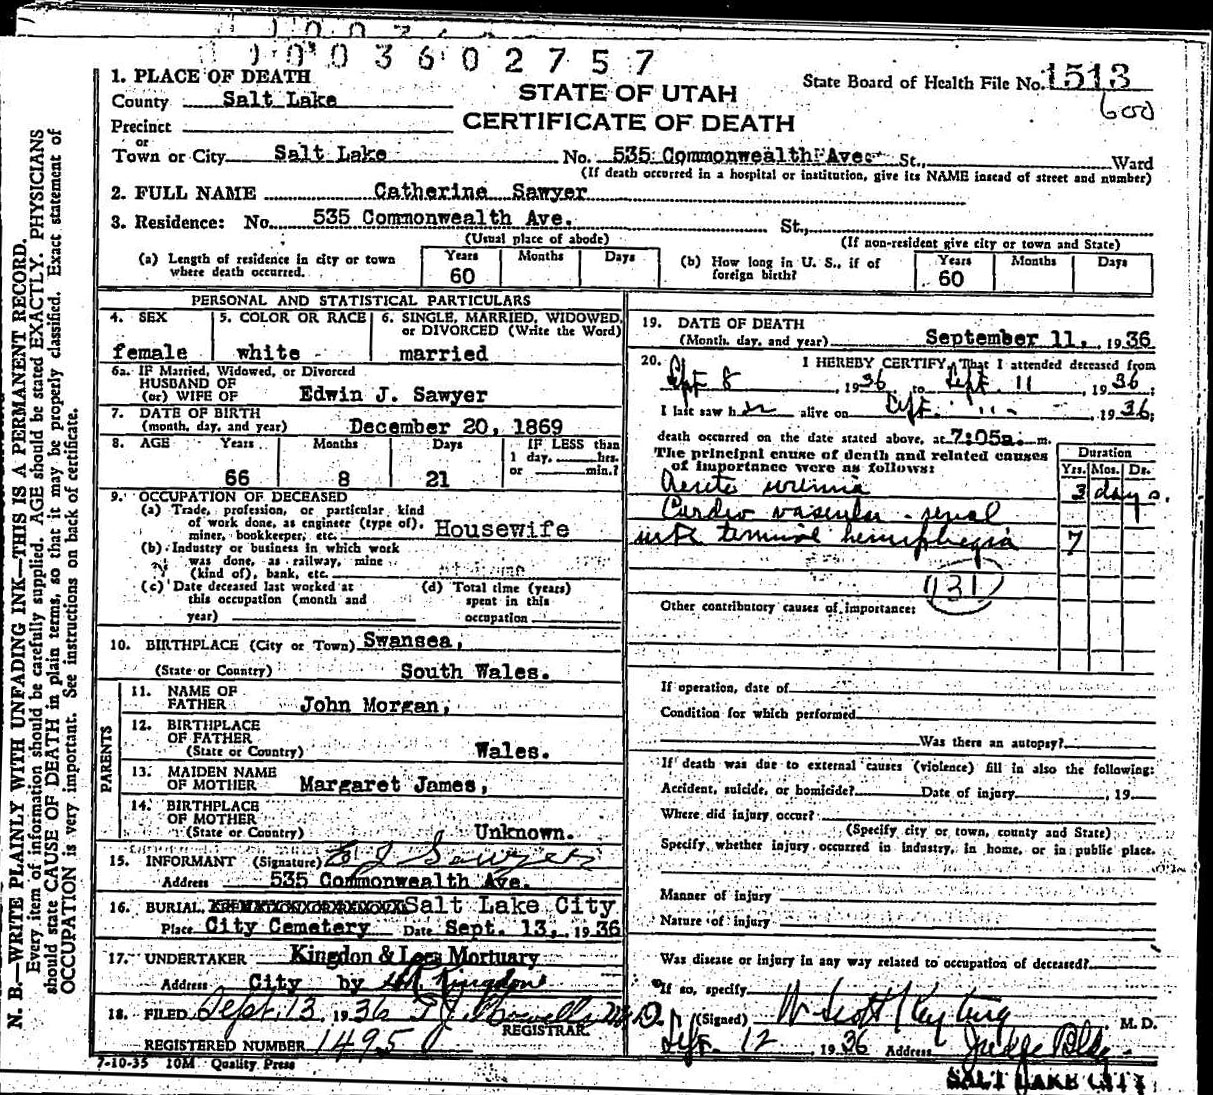 1 0 0 3 6 0 2 7 5 7
State Board of Health File No. 1513
600
STATE OF UTAH
CERTIFICATE OF DEATH
1. PLACE OF DEATH
County Salt Lake
Precinct
or
Town or City Salt Lake No. 535 Commonwealth Ave. St., Ward
(If death occurred in a hospital or institution, give its NAME instead of street and number)
2. FULL NAME Catherine Sawyer
3. Residence: No. 535 Commonwealth Ave. St.,
(Usual place of abode) (If non-resident give city or town and State)
(a) Length of residence in city or town where death occurred. Years 60 Months Days
(b) How long in U. S., if of foreign birth? Years 60 Months Days
PERSONAL AND STATISTICAL PARTICULARS
4. SEX female
5. COLOR OR RACE white
6. SINGLE, MARRIED, WIDOWED, or DIVORCED (Write the Word) married
6a. IF Married, Widowed, or Divorced
HUSBAND OF
(or) WIFE OF Edwin J. Sawyer
7. DATE OF BIRTH
(month, day, and year) December 20, 1869
8. AGE Years 66 Months 8 Days 21
IF LESS than
1 day, hrs.
or min.?
9. OCCUPATION OF DECEASED
(a) Trade, profession, or particular kind
of work done, as engineer (type of),
miner, bookkeeper, etc. Housewife
(b) Industry or business in which work
was done, as railway, mine
(kind of), bank, etc.
(c) Date deceased last worked at
this occupation (month and
year)
(d) Total time (years)
spent in this
occupation
10. BIRTHPLACE (City or Town) Swansea,
(State or Country) South Wales.
PARENTS
11. NAME OF
FATHER John Morgan,
12. BIRTHPLACE
OF FATHER
(State or Country) Wales.
13. MAIDEN NAME
OF MOTHER Margaret James,
14. BIRTHPLACE
OF MOTHER
(State or Country) Unknown.
15. INFORMANT (Signature) E J Sawyer
Address 535 Commonwealth Ave.
16. BURIAL, Salt Lake City
Place City Cemetery Date Sept. 13, 1936
17. UNDERTAKER Kingdon & Lees Mortuary
Address City by Kingdon
18. FILED Sept. 13, 1936 M.D.
REGISTRAR.
REGISTERED NUMBER 1495
7-10-35 10M Quality Press
19. DATE OF DEATH
(Month, day, and year) September 11, 1936
20. I HEREBY CERTIFY, That I attended deceased from
Sept 8, 1936 to Sept. 11, 1936;
I last saw her alive on Sept. 11, 1936;
death occurred on the date stated above, at 7:05a. m.
The principal cause of death and related causes
of importance were as follows:
Duration
Yrs. Mos. Ds.
Acute uremia 3 days.
Cardio vascular - renal
with terminal hemiphegia 7
131
Other contributory causes of importance:
If operation, date of
Condition for which performed
Was there an autopsy?
If death was due to external causes (violence) fill in also the following:
Accident, suicide, or homicide? Date of injury , 19
Where did injury occur?
(Specify city or town, county and State)
Specify, whether injury occurred in industry, in home, or in public place.
Manner of injury
Nature of injury
Was disease or injury in any way related to occupation of deceased?
If so, specify
(Signed) W Scott Keyting, M. D.
Sept. 12, 1936 Address Judge Bldg.
SALT LAKE CITY
N. B.—WRITE PLAINLY WITH UNFADING INK—THIS IS A PERMANENT RECORD.
Every item of information should be carefully supplied. AGE should be stated EXACTLY. PHYSICIANS
should state CAUSE OF DEATH in plain terms, so that it may be properly classified. Exact statement of
OCCUPATION is very important. See instructions on back of certificate.